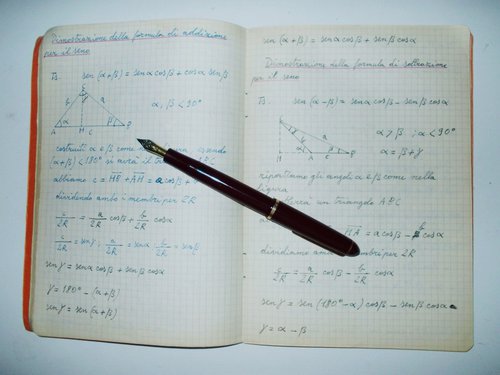 Dimostrazione della formula di addizione
per il seno
Ts. sen (α+β) = sen α cos β + cos α sen β
α, β < 90°
b a
α β
A H c B
costruiti α e β come
(α+β) < 180° si avrà il
abbiamo c = HB + AH = a cos β +
dividendo ambo i membri per 2R
c/2R = a/2R cos β + b/2R cos α
c/2R = sen γ ; a/2R = sen α ; b/2R = sen β
sen γ = sen α cos β + sen β cos α
γ = 180° - (α+β)
sen γ = sen (α+β)
sen (α+β) = sen α cos β + sen β cos α
Dimostrazione della formula di sottrazione
per il seno
Ts. sen (α-β) = sen α cos β - sen β cos α
α > β ; α < 90°
α = β + γ
H A c B
riportiamo gli angoli α e β come nella
figura
un triangolo ABC
HA = a cos β - b cos α
dividiamo membri per 2R
a/2R cos β - b/2R cos α
sen γ = sen (180°-α) cos β - sen β cos α
γ = α - β